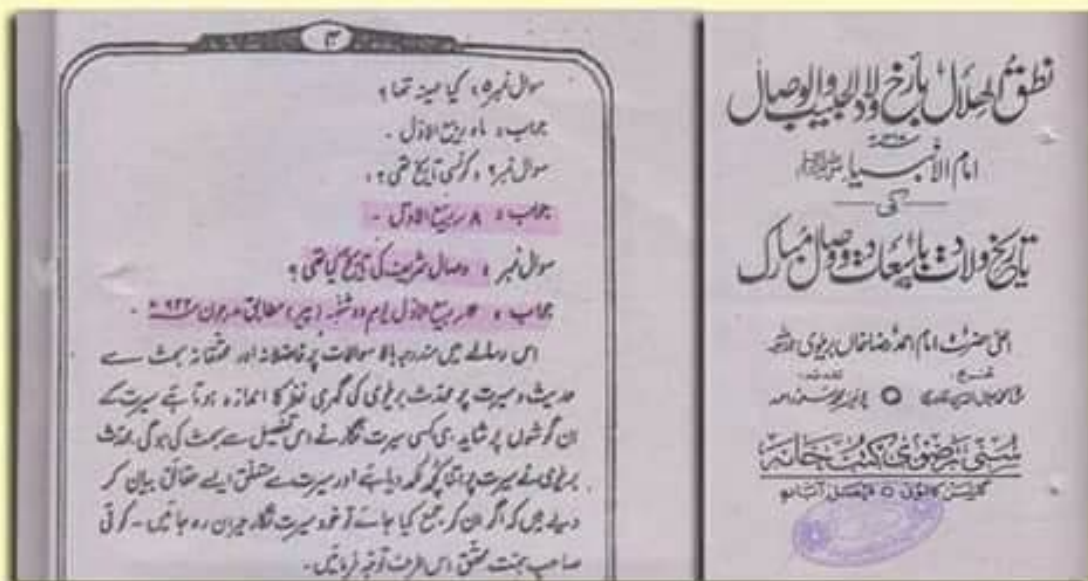 نطق الھلال بارخ ولاد الحبیب والوصال
امام الانبیاء ﷺ
کی
تاریخ ولادت باسعادت و وصال مبارک
اعلیٰ حضرت امام احمد رضا خاں بریلوی
سنی رضوی کتب خانہ
گلشن کالونی فیصل آباد
سوال نمبر ۵ : کیا مہینہ تھا ؟
جواب : ماہ ربیع الاول ۔
سوال نمبر ۶ : کونسی تاریخ تھی ؟
جواب : ۸ ربیع الاول ۔
سوال نمبر : وصال شریف کی تاریخ کیا تھی ؟
جواب : ربیع الاول یوم دو شنبہ (پیر) مطابق جون
اس رسالے میں مندرجہ بالا سوالات پر فاضلانہ اور محققانہ بحث سے
حدیث و سیرت پر محدث بریلوی کی گہری نظر کا اندازہ ہوتا ہے سیرت کے
ان گوشوں پر شاید ہی کسی سیرت نگار نے اس تفصیل سے بحث کی ہوگی محدث
بریلوی نے سیرت پر اتنا کچھ لکھ دیا ہے اور سیرت سے متعلق ایسے حقائق بیان کر
دیئے ہیں کہ اگر ان کو جمع کیا جائے تو خود سیرت نگار حیران رہ جائیں ۔ کوئی
صاحب ہمت محقق اس طرف توجہ فرمائیں ۔